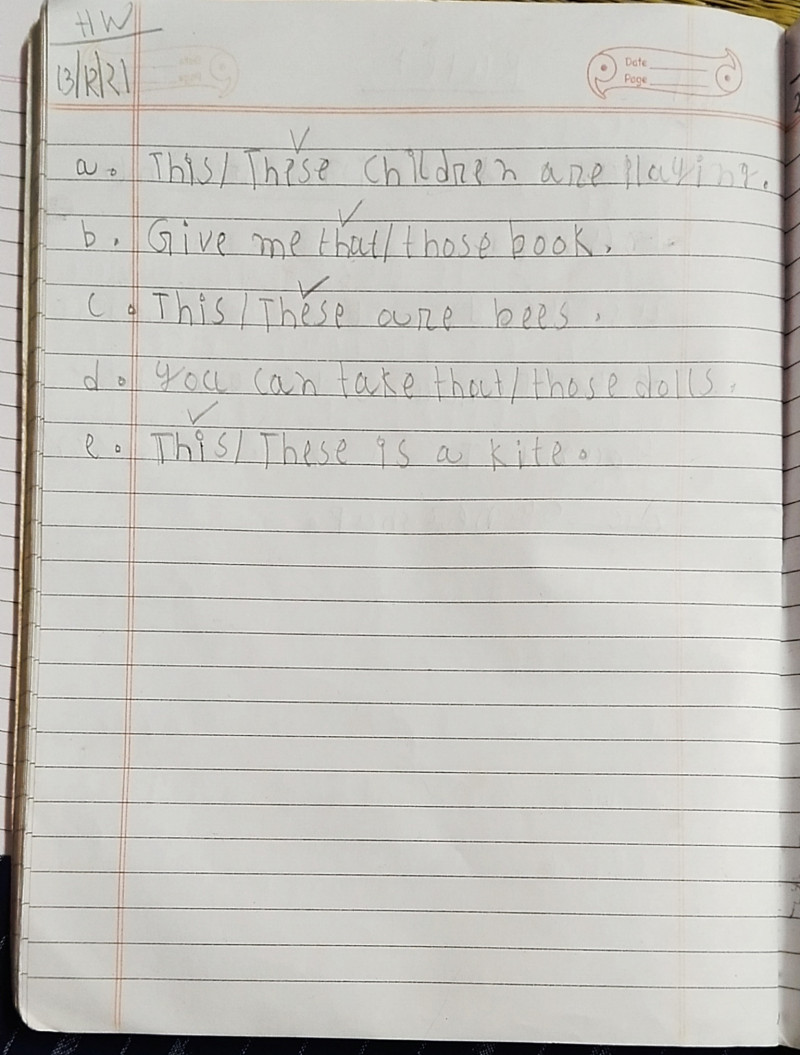 HW
13/12/21
Date
Page
a. This/These children are playing.
b. Give me that/those book.
c. This/These are bees.
d. You can take that/those dolls.
e. This/These is a kite.